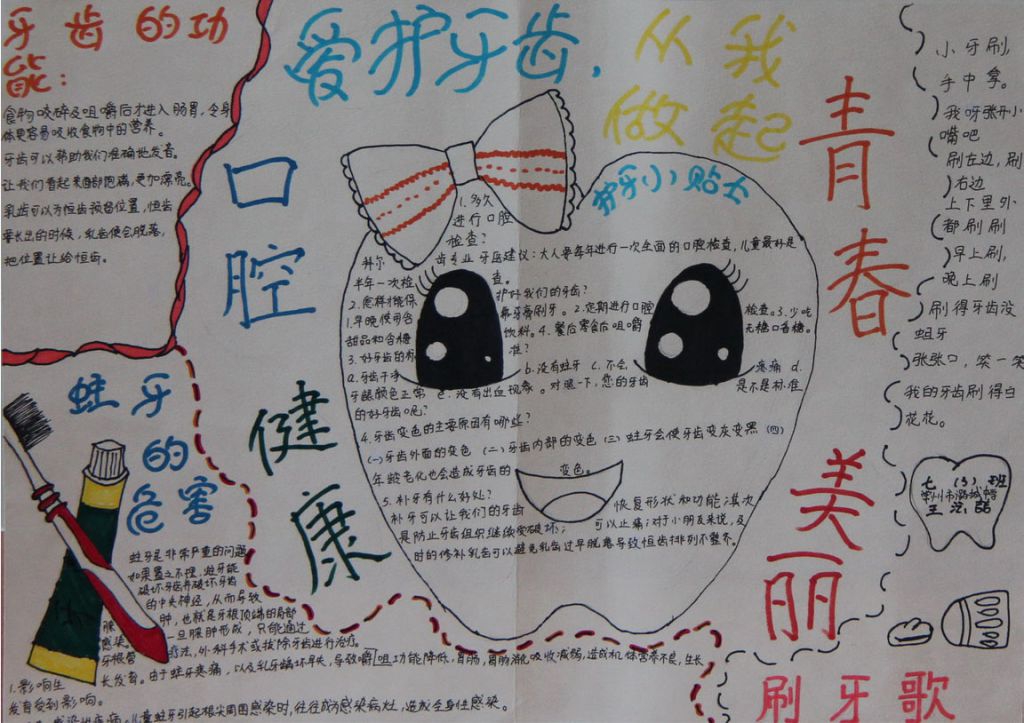 爱护牙齿，从我
做起
牙齿的功
能：
食物咬碎及咀嚼后才进入肠胃，令身
体更容易吸收食物中的营养。
牙齿可以帮助我们准确地发音。
让我们看起来面部饱满，更加漂亮。
乳齿可以为恒齿预留位置，恒齿
要长出的时候，乳齿便会脱落，
把位置让给恒齿。
口腔
健康
青春
美丽
护牙小贴士
1.多久
进行口腔
检查？
科尔齿专业牙医建议：大人要每年进行一次全面的口腔检查，儿童最好是
半年一次检查。
2.怎样才能保护好我们的牙齿？
1.早晚使用含氟牙膏刷牙。2.定期进行口腔检查。3.少吃
甜品和含糖饮料。4.餐后零食后咀嚼无糖口香糖。
3.好牙齿的标准？
a.牙齿干净 b.没有蛀牙 c.不会疼痛 d.
牙龈颜色正常 e.没有出血现象。对照一下，您的牙齿是不是标准
的好牙齿呢？
4.牙齿变色的主要原因有哪些？
(一)牙齿外面的变色 (二)牙齿内部的变色 (三)蛀牙会使牙齿变灰变黑 (四)
年龄老化也会造成牙齿的变色。
5.补牙有什么好处？
补牙可以让我们的牙齿恢复形状和功能；其次
是防止牙齿组织继续受破坏；可以止痛；对于小朋友来说，及
时的修补乳齿可以避免乳齿过早脱落导致恒齿排列不整齐。
蛀牙
的
危害
蛀牙是非常严重的问题
如果置之不理，蛀牙能
破坏牙齿并破坏牙齿
的中央神经，从而导致
脓肿，也就是牙根顶端的局部
感染。一旦脓肿形成，只能通过
牙根管疗法，外科手术或拔除牙齿进行治疗。
1.影响生长发育。由于蛀牙疼痛，以及乳牙龋坏早失，导致咀嚼功能降低，胃肠消化吸收减弱，造成机体营养不良，生长
发育受到影响。
儿童蛀牙引起根尖周围感染时，往往成为感染病灶，造成全身性感染。
小牙刷，
手中拿。
我呀张开小
嘴吧
刷左边，刷
右边
上下里外
都刷刷
早上刷，
晚上刷
刷得牙齿没
蛀牙
张张口，笑一笑
我的牙齿刷得白
花花。
七（3）班
刷牙歌